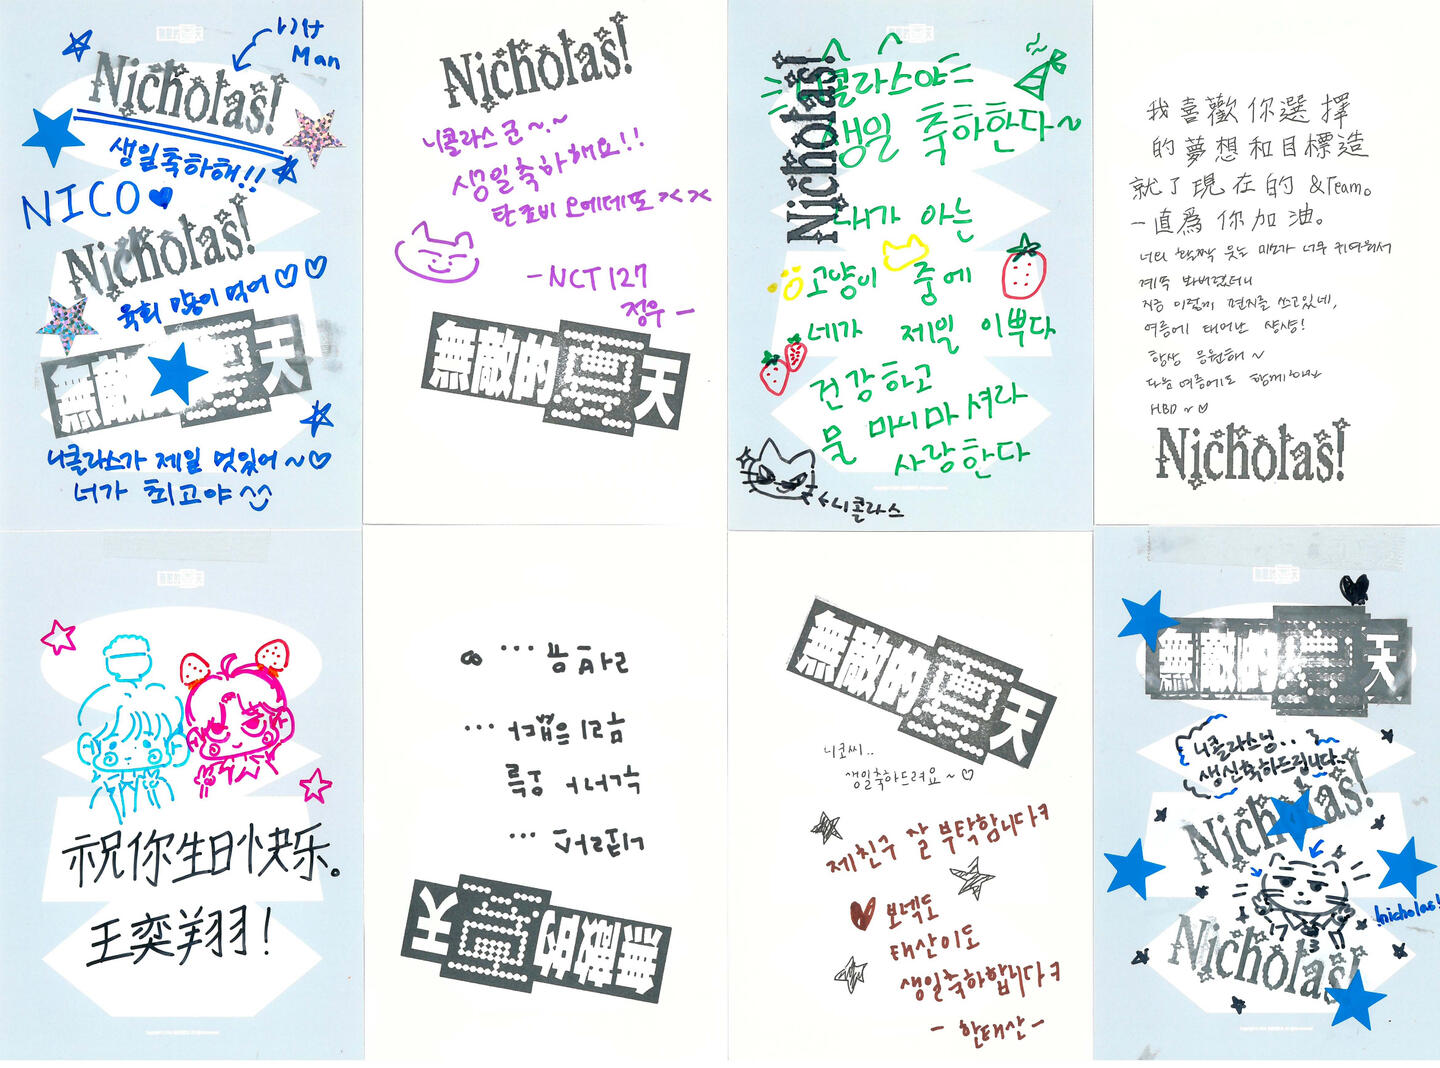 나쁜
Man
Nicholas!
생일축하해!!
NICO
Nicholas!
육회 많이 먹어
無敵的夏天
니콜라스가 제일 멋있어~
너가 최고야
Nicholas!
니콜라스 군~.~
생일축하해요!!
탄죠비 오메데또 ><
-NCT 127
정우-
無敵的夏天
Nicholas!
니콜라스야
생일 축하한다~
내가 아는
고양이 중에
네가 제일 이쁘다
건강하고
물 마시마셔라
사랑한다
←니콜라스
我喜歡你選擇
的夢想和目標造
就了現在的 &Team。
一直為你加油。
너의 활짝 웃는 미모가 너무 귀여워서
계속 봐버렸더니
지금 이렇게 편지를 쓰고있네,
여름에 태어난 샹샹!
항상 응원해~
다음 여름에도 함께하자
HBD~
Nicholas!
無敵的夏天
祝你生日快乐。
王奕翔!
無敵的夏天
無敵的夏天
니코씨..
생일축하드려요~
제친구 잘 부탁합니다ㅋ
보넥도
태산이도
생일축하합니다ㅋ
- 한태산 -
無敵的夏天
無敵的夏天
니콜라스님..
생신축하드립니다..
Nicholas!
nicholas!
Nicholas!